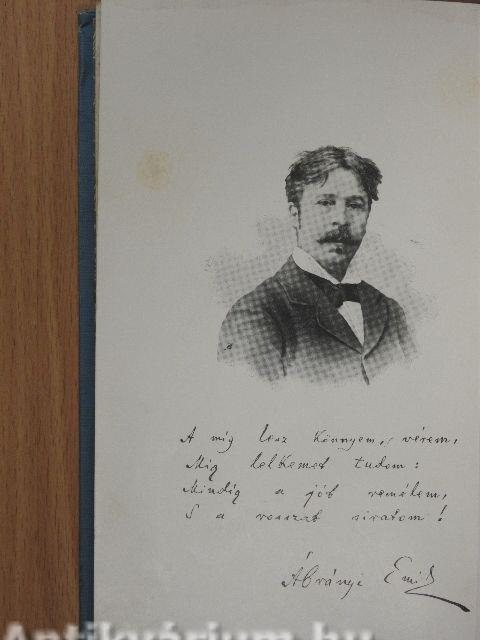 A míg lesz könnyem, s vérem,
Míg lelkemet tudom:
Mindig a jót remélem,
S a rosszat siratom!
Ábrányi Emil
Antikvárium.hu